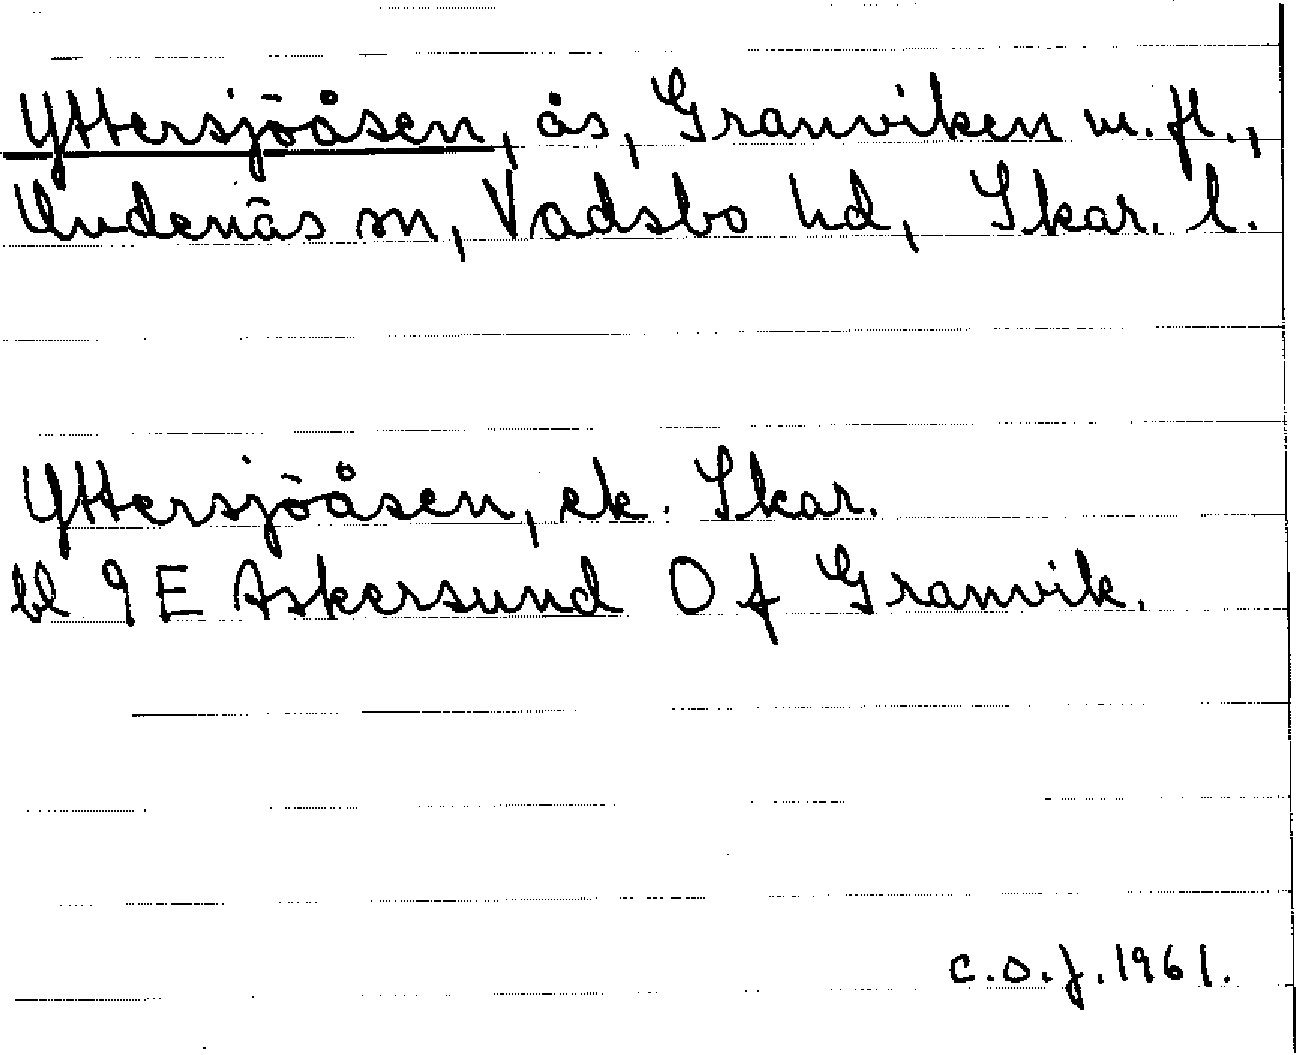 Yttersjöåsen, ås, Granviken m.fl.,
Undenäs sn, Vadsbo hd, Skar. l.
Yttersjöåsen, ek. Skar.
bl 9 E Askersund O f Granvik.
C.O.J. 1961.